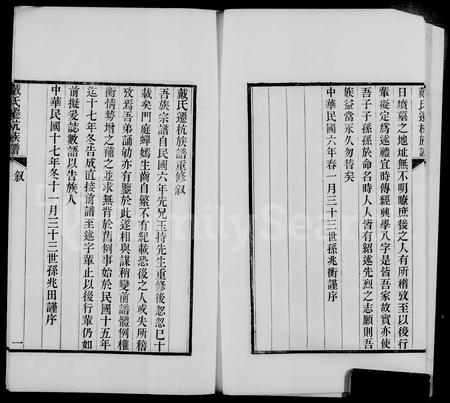 日墳墓之地址無不明瞭庶後之人有所稽攷至以後行
輩擬定為述禮宜時傳經興學八字是皆吾家故實亦使
吾子子孫孫於命名時人人皆有紹述先烈之志願則吾
族益當永久勿替矣
中華民國六年春一月三十三世孫兆衡謹序
戴氏遷杭族譜
戴氏遷杭族譜重修叙
吾族宗譜自民國六年先兄玉持先生重修後忽忽已十
載矣門庭蟬嫣生齒自繁不有紀載恐後之人或失所稽
攷焉吾弟誦劬亦有鑒於此遂相與謀稍變前譜體例權
衡情勢增之補之並求無背於舊例事始於民國十五年
迄十七年冬告成直接前譜至述字輩止以後行輩仍如
前擬爰誌數語以告族人
中華民國十七年冬十一月三十三世孫兆田謹序
戴氏遷杭族譜 叙 一
FamilySearch